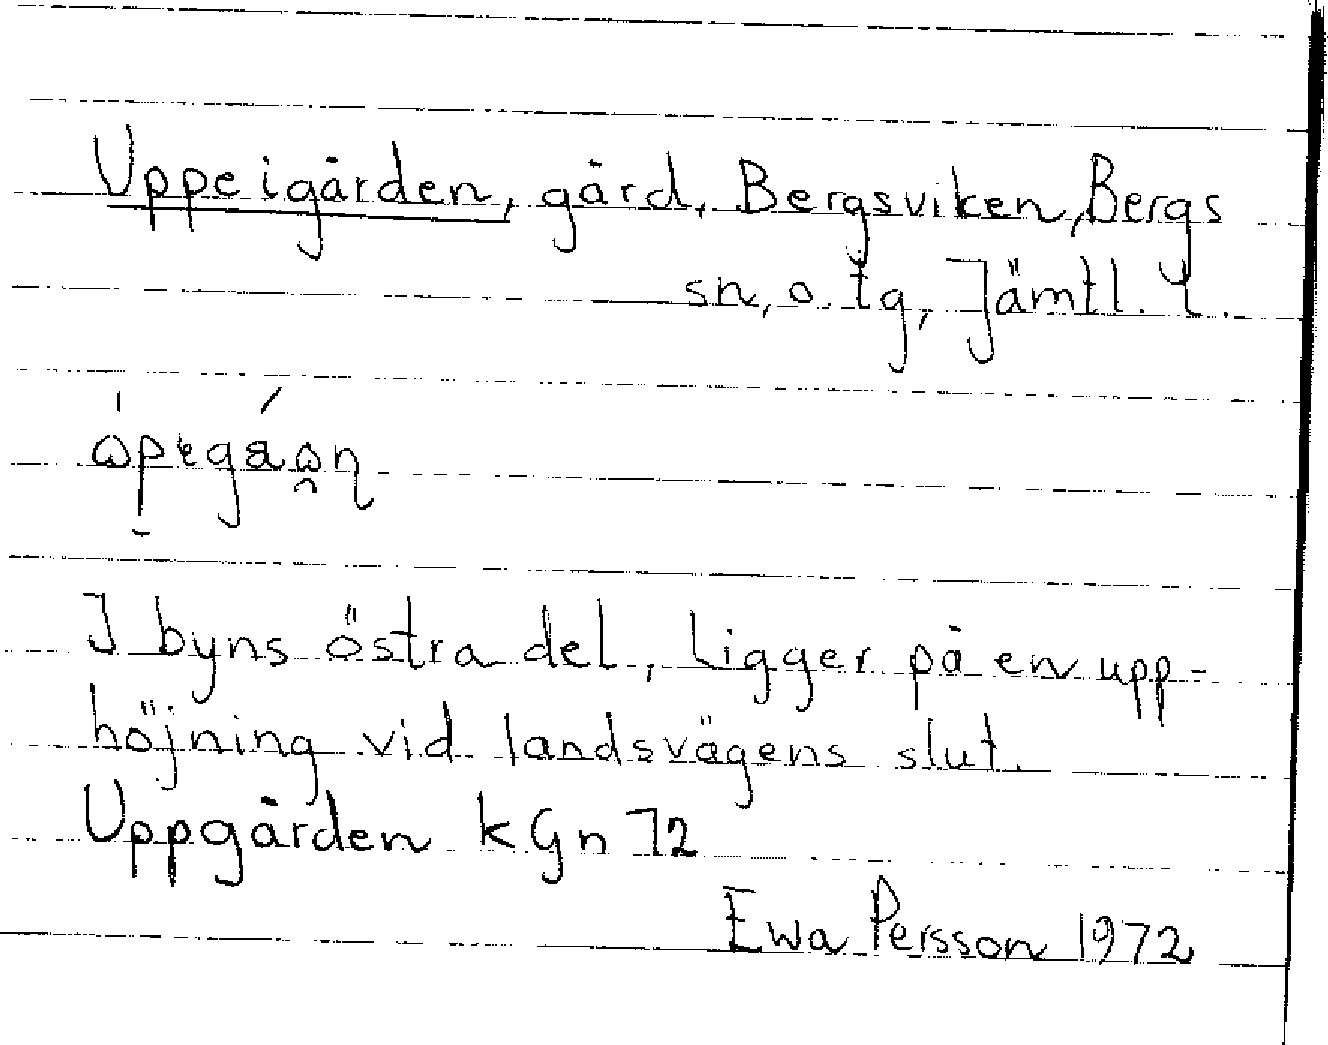 Uppeigården, gård, Bergsviken, Bergs
sn, o. tg, Jämtl. L.
I byns östra del, ligger på en upp-
höjning vid landsvägens slut.
Uppgården kGn 72
Ewa Persson 1972